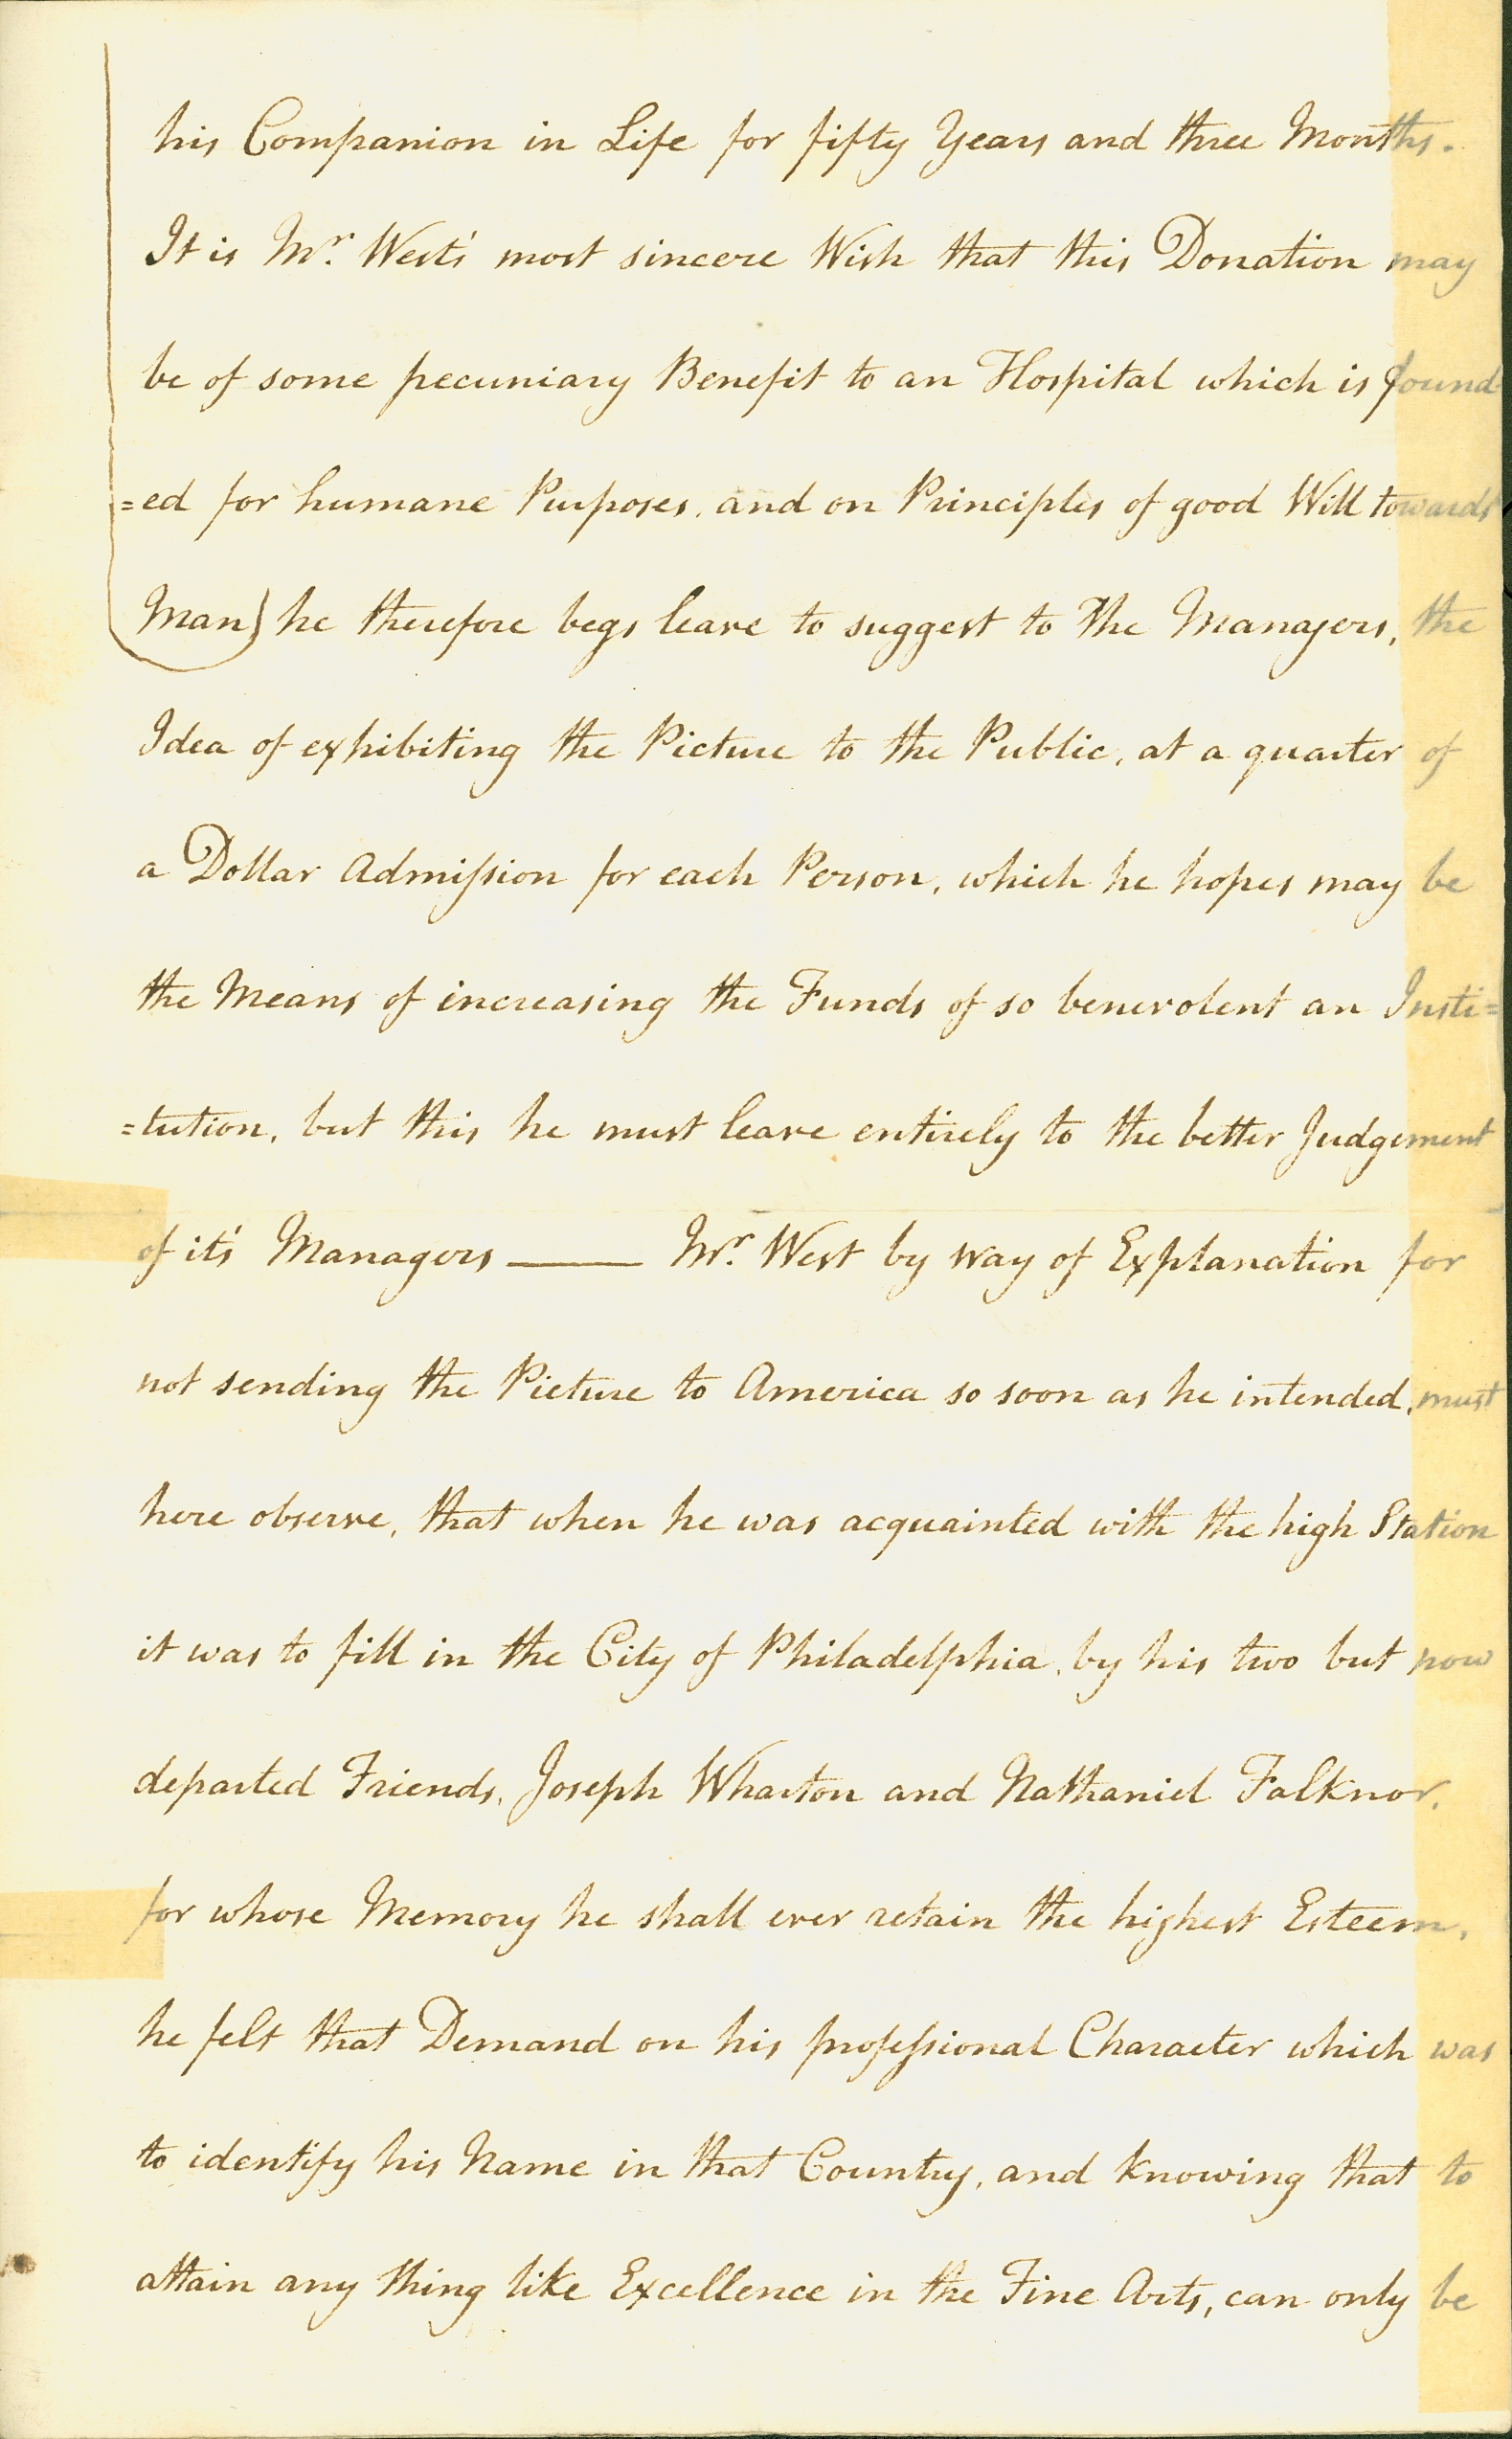 his Companion in Life for fifty Years and three Months.
It is Mr. West's most sincere Wish that this Donation may
be of some pecuniary Benefit to an Hospital which is found
=ed for humane Purposes, and on Principles of good Will towards
Man) he therefore begs leave to suggest to The Managers, the
Idea of exhibiting the Picture to the Public, at a quarter of
a Dollar Admission for each Person, which he hopes may be
the Means of increasing the Funds of so benevolent an Insti=
=tution, but this he must leave entirely to the better Judgement
of it's Managers —— Mr. West by way of Explanation for
not sending the Picture to America so soon as he intended, must
here observe, that when he was acquainted with the high Station
it was to fill in the City of Philadelphia, by his two but now
departed Friends, Joseph Wharton and Nathaniel Falknor,
for whose Memory he shall ever retain the highest Esteem,
he felt that Demand on his professional Character which was
to identify his Name in that Country, and knowing that to
attain any thing like Excellence in the Fine Arts, can only be